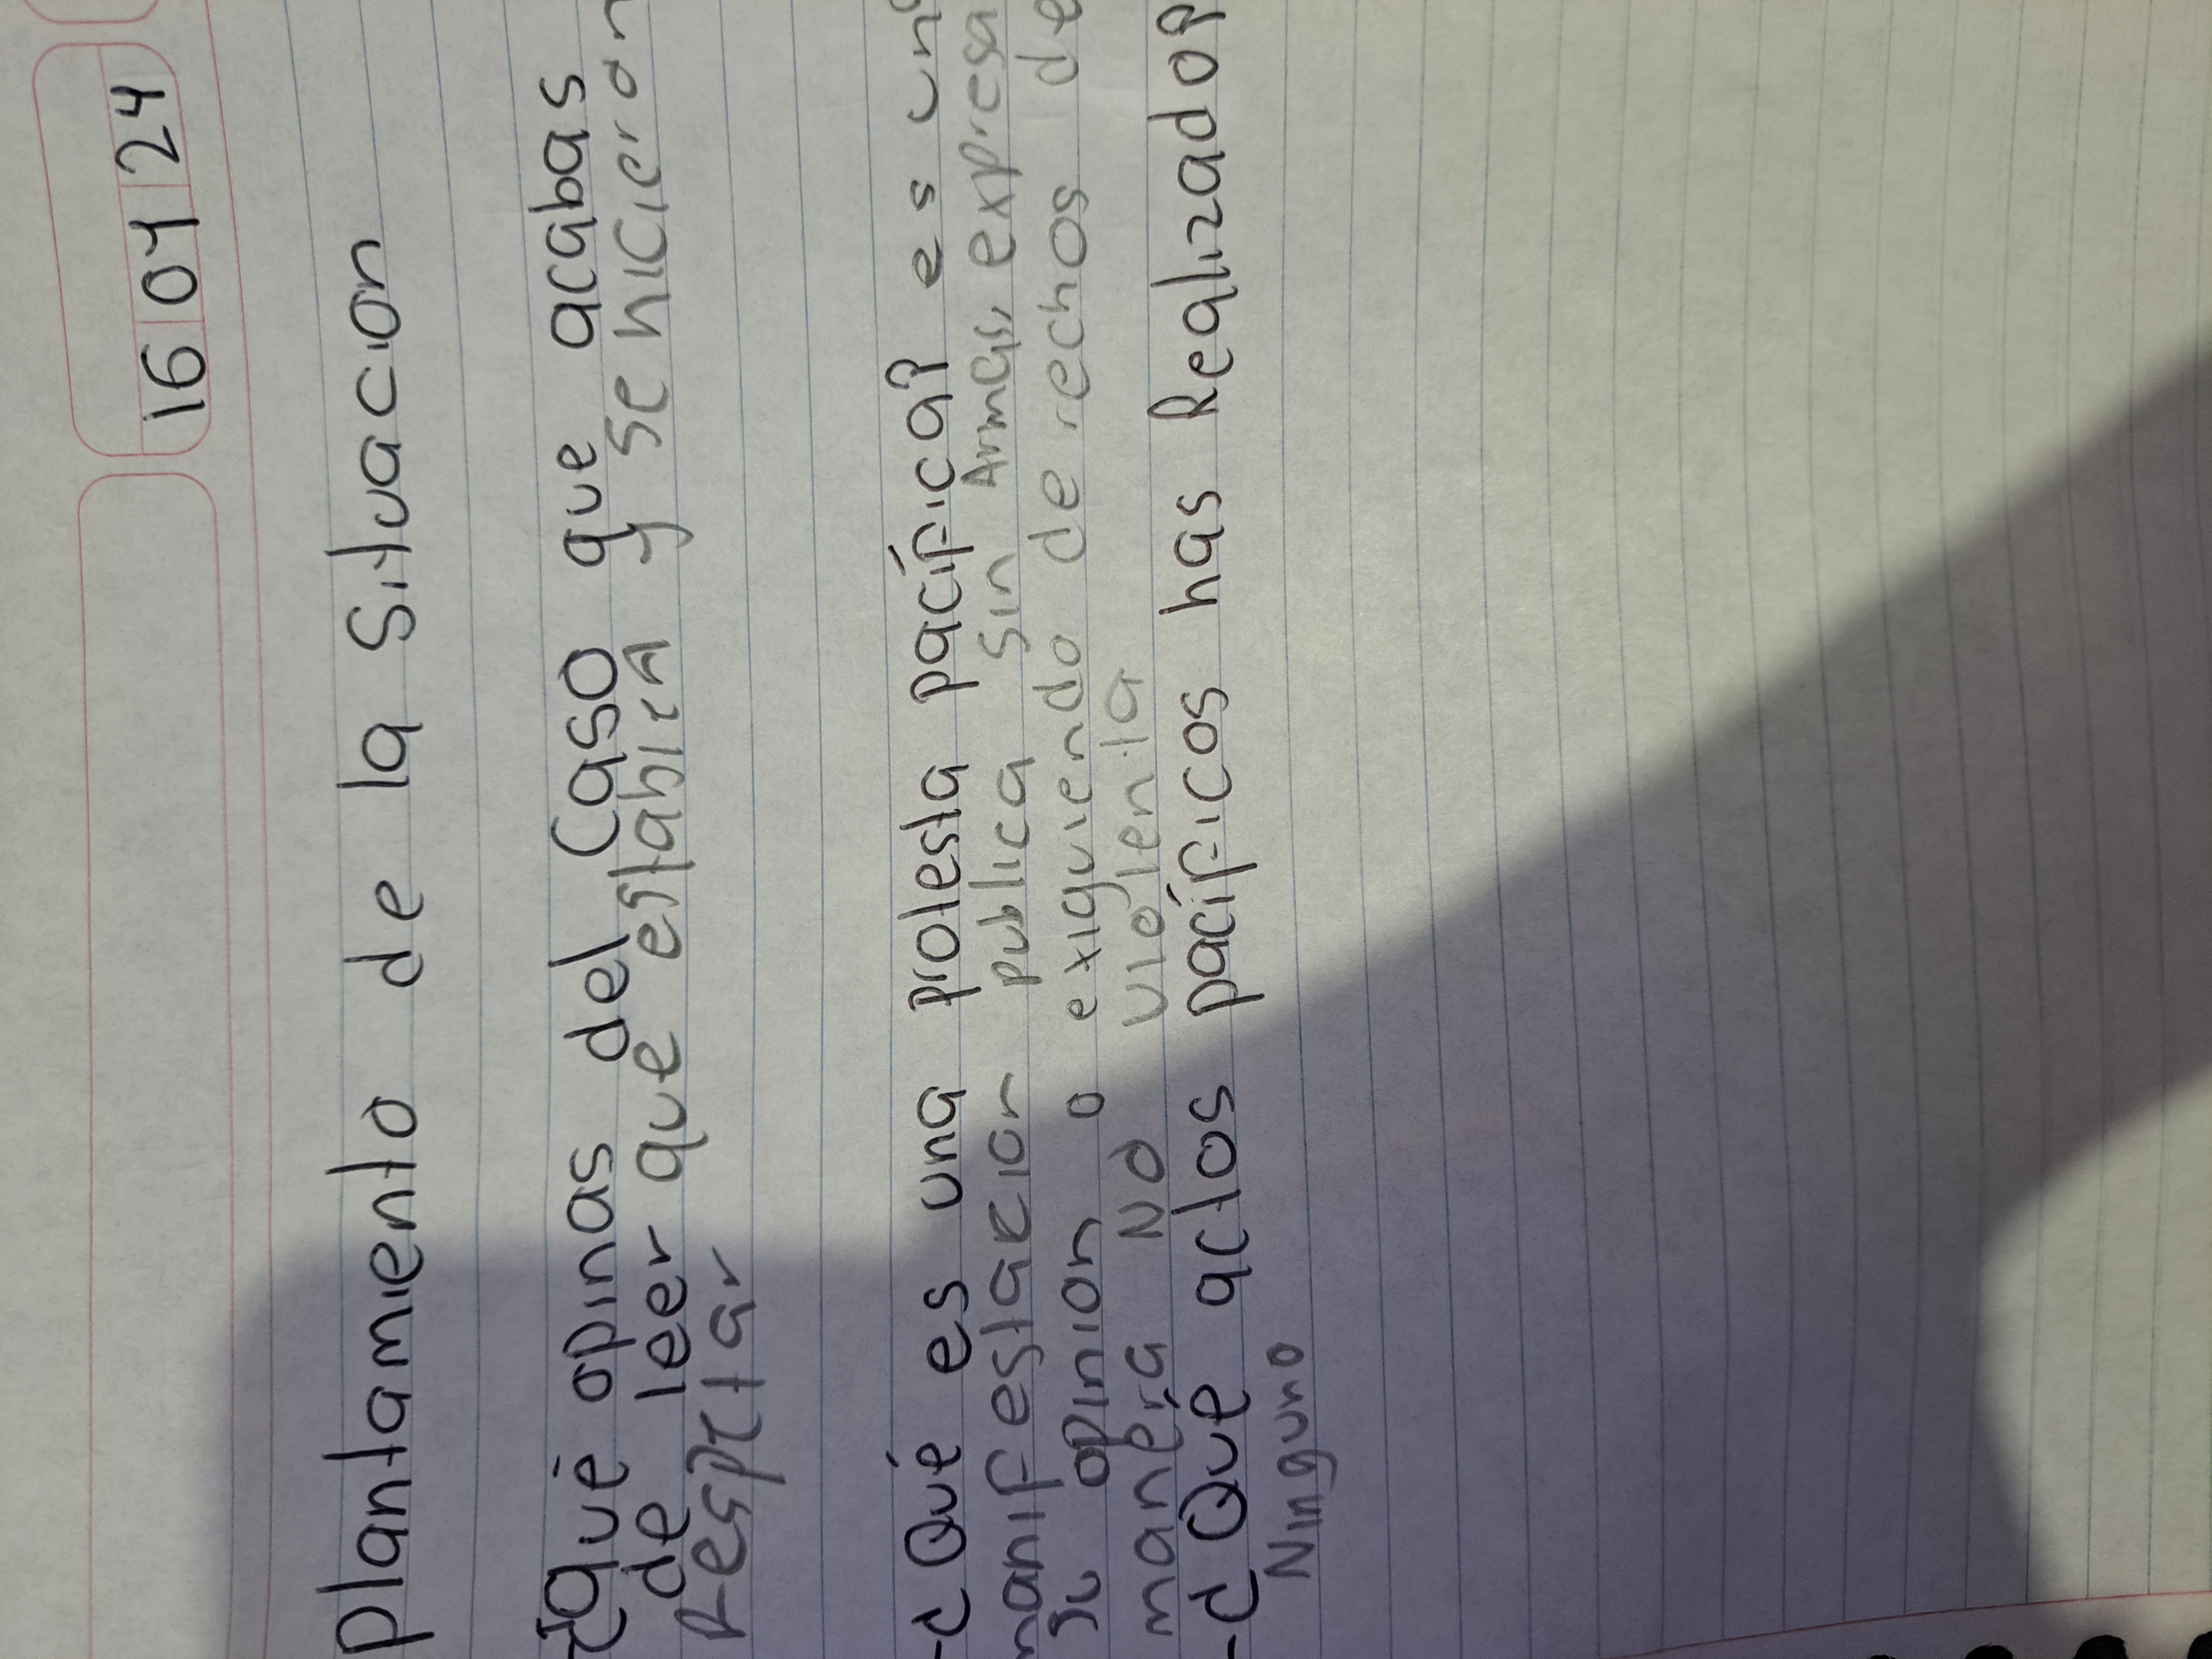 16 04 24
plantamiento de la Situacion
¿Qué opinas del Caso que acabas
de leer que estabien y se hicieron
respetar
-¿Qué es una protesta pacífica? es una
manifestacion publica sin Armas, expresa
su opinion o exiguiendo derechos de
manera NO violenta
-¿Qué actos pacíficos has Realizado?
Ninguno